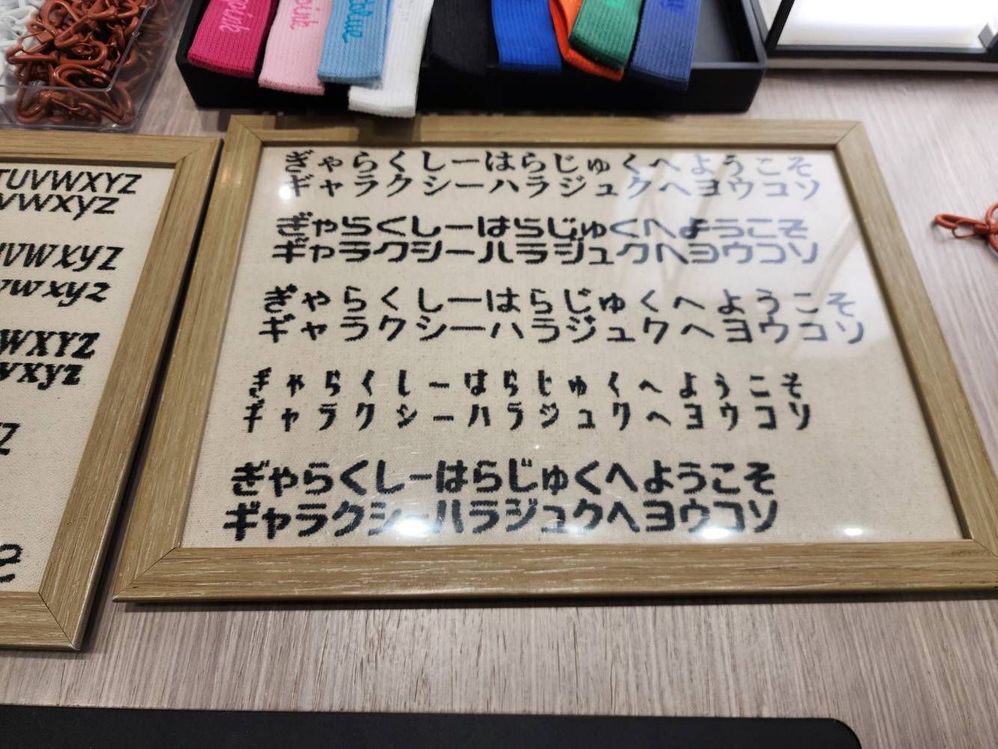 pink
TUVWXYZ
vwxyz
UVWXYZ
vwxyz
WXYZ
vxyz
Z
ぎゃらくしーはらじゅくへようこそ
ギャラクシーハラジュクヘヨウコソ
ぎゃらくしーはらじゅくへようこそ
ギャラクシーハラジュクヘヨウコソ
ぎゃらくしーはらじゅくへようこそ
ギャラクシーハラジュクヘヨウコソ
ぎゃらくしーはらじゅくへようこそ
ギャラクシーハラジュクヘヨウコソ
ぎゃらくしーはらじゅくへようこそ
ギャラクシーハラジュクヘヨウコソ